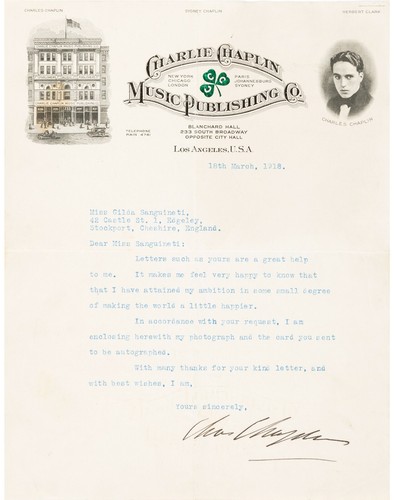 CHARLES CHAPLIN SYDNEY CHAPLIN HERBERT CLARK
CHARLIE CHAPLIN
NEW YORK CHICAGO LONDON
PARIS JOHANNESBURG SYDNEY
MUSIC PUBLISHING CO.
BLANCHARD HALL
233 SOUTH BROADWAY
OPPOSITE CITY HALL
LOS ANGELES, U.S.A
TELEPHONE
MAIN
CHARLES CHAPLIN
18th March, 1918.
Miss Gilda Sanguineti,
42 Castle St. 1, Edgeley,
Stockport, Cheshire, England.
Dear Miss Sanguineti:
Letters such as yours are a great help
to me. It makes me feel very happy to know that
that I have attained my ambition in some small degree
of making the world a little happier.
In accordance with your request, I am
enclosing herewith my photograph and the card you sent
to be autographed.
With many thanks for your kind letter, and
with best wishes, I am,
Yours sincerely,
Chas Chaplin